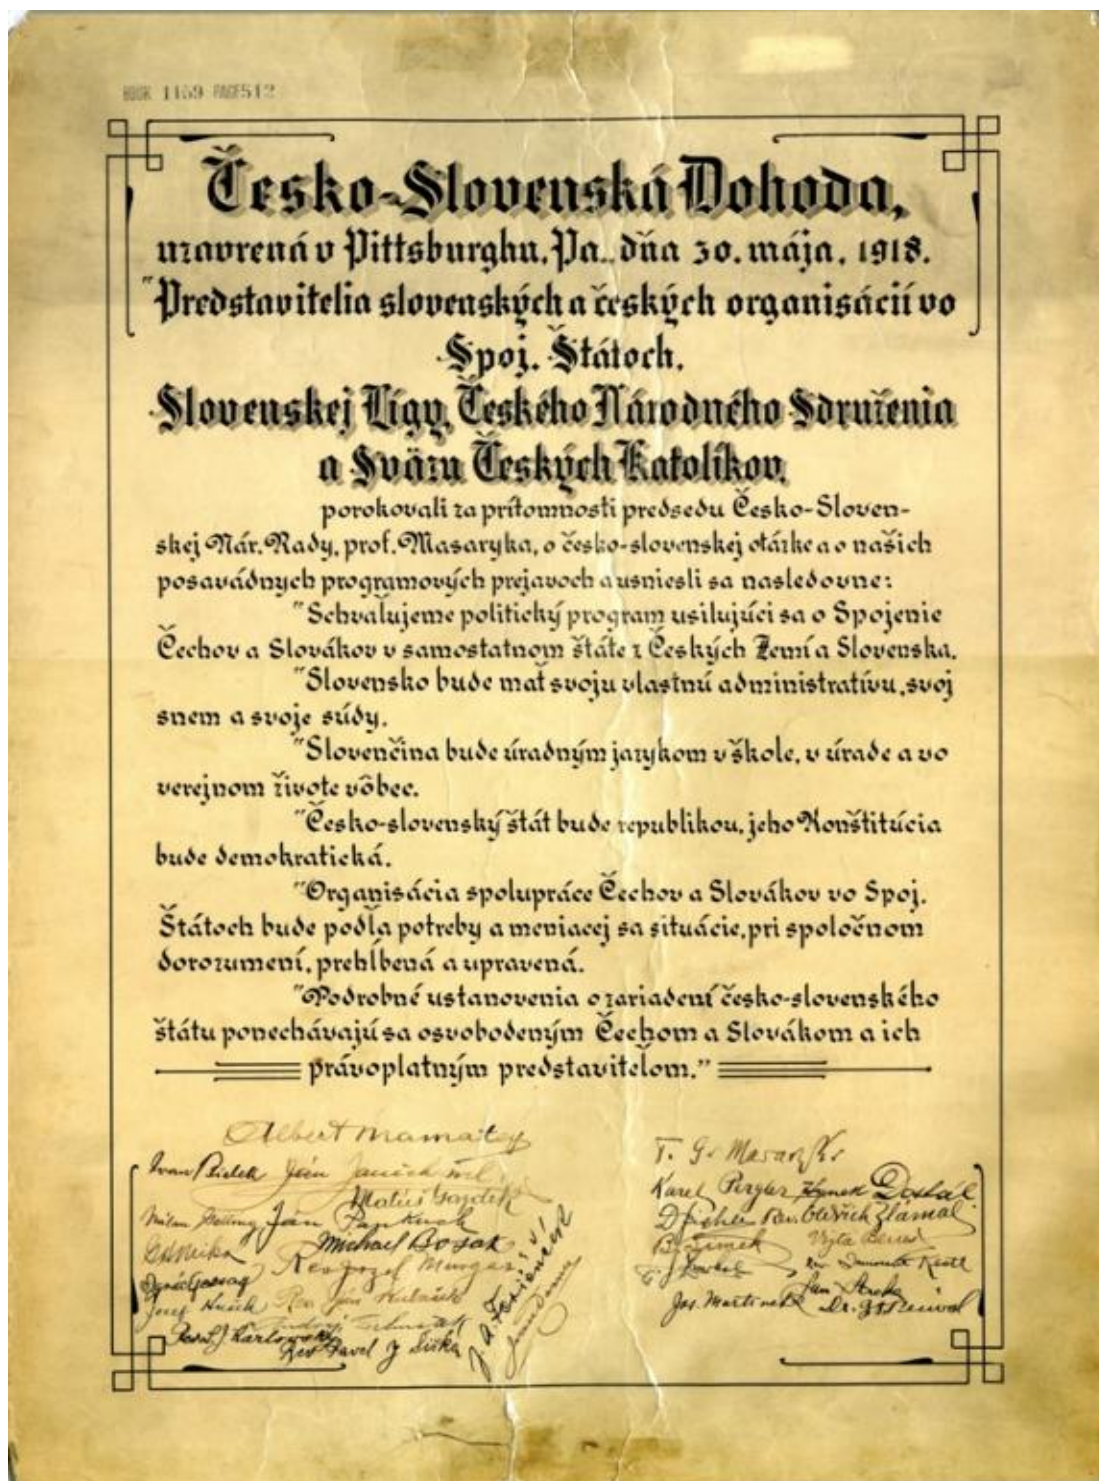 BOOK 1169 PAGE 512
Česko-Slovenská Dohoda,
uzavrená v Pittsburghu, Pa., dňa 30. mája, 1918.
"Predstavitelia slovenských a českých organisácií vo
Spoj. Štátoch,
Slovenskej Lígy, Českého Národného Sdruženia
a Sväzu Českých Katolíkov,
porokovali za prítomnosti predsedu Česko-Sloven-
skej Nár. Rady, prof. Masaryka, o česko-slovenskej otázke a o našich
posavádnych programových prejavoch a usniesli sa nasledovne:
"Schvaľujeme politický program usilujúci sa o Spojenie
Čechov a Slovákov v samostatnom štáte z Českých Zemí a Slovenska.
"Slovensko bude mať svoju vlastnú administratívu, svoj
snem a svoje súdy.
"Slovenčina bude úradným jazykom v škole, v úrade a vo
verejnom živote vôbec.
"Česko-slovenský štát bude republikou, jeho Konštitúcia
bude demokratická.
"Organisácia spolupráce Čechov a Slovákov vo Spoj.
Štátoch bude podľa potreby a meniacej sa situácie, pri spoločnom
dorozumení, prehĺbená a upravená.
"Podrobné ustanovenia o zariadení česko-slovenského
štátu ponechávajú sa osvobodeným Čechom a Slovákom a ich
právoplatným predstaviteľom."
Albert Mamatey
Ivan Bielek Ján Janček ml.
Matúš Gazdík
Milan Getting Ján Pankuch
Michael Bosak
Rev Jozef Murgaš
Jozef Hušek Rev Ján Kubašek
Rev Pavel J Šiška
T. G. Masaryk
Karel Pergler Hynek Dostál
Rev. Oldřich Zlámal
B. Šimek Vojta Beneš
Jos. Martinek